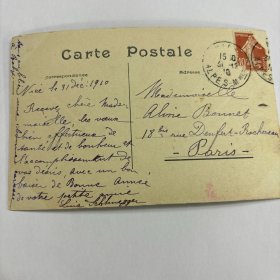 Carte Postale
Correspondance
Adresse
Nice le 31 déc 1910
Recevez chère Made
moiselle les vœux
bien affectueux de
santé et de bonheur et
l'accomplissement de
vos désirs, avec un bon
baiser de Bonne Année
de votre petite amie
Mademoiselle
Alice Bonnet
18 bis rue Denfert-Rochereau
Paris
15
31
10
ALPES-M
10